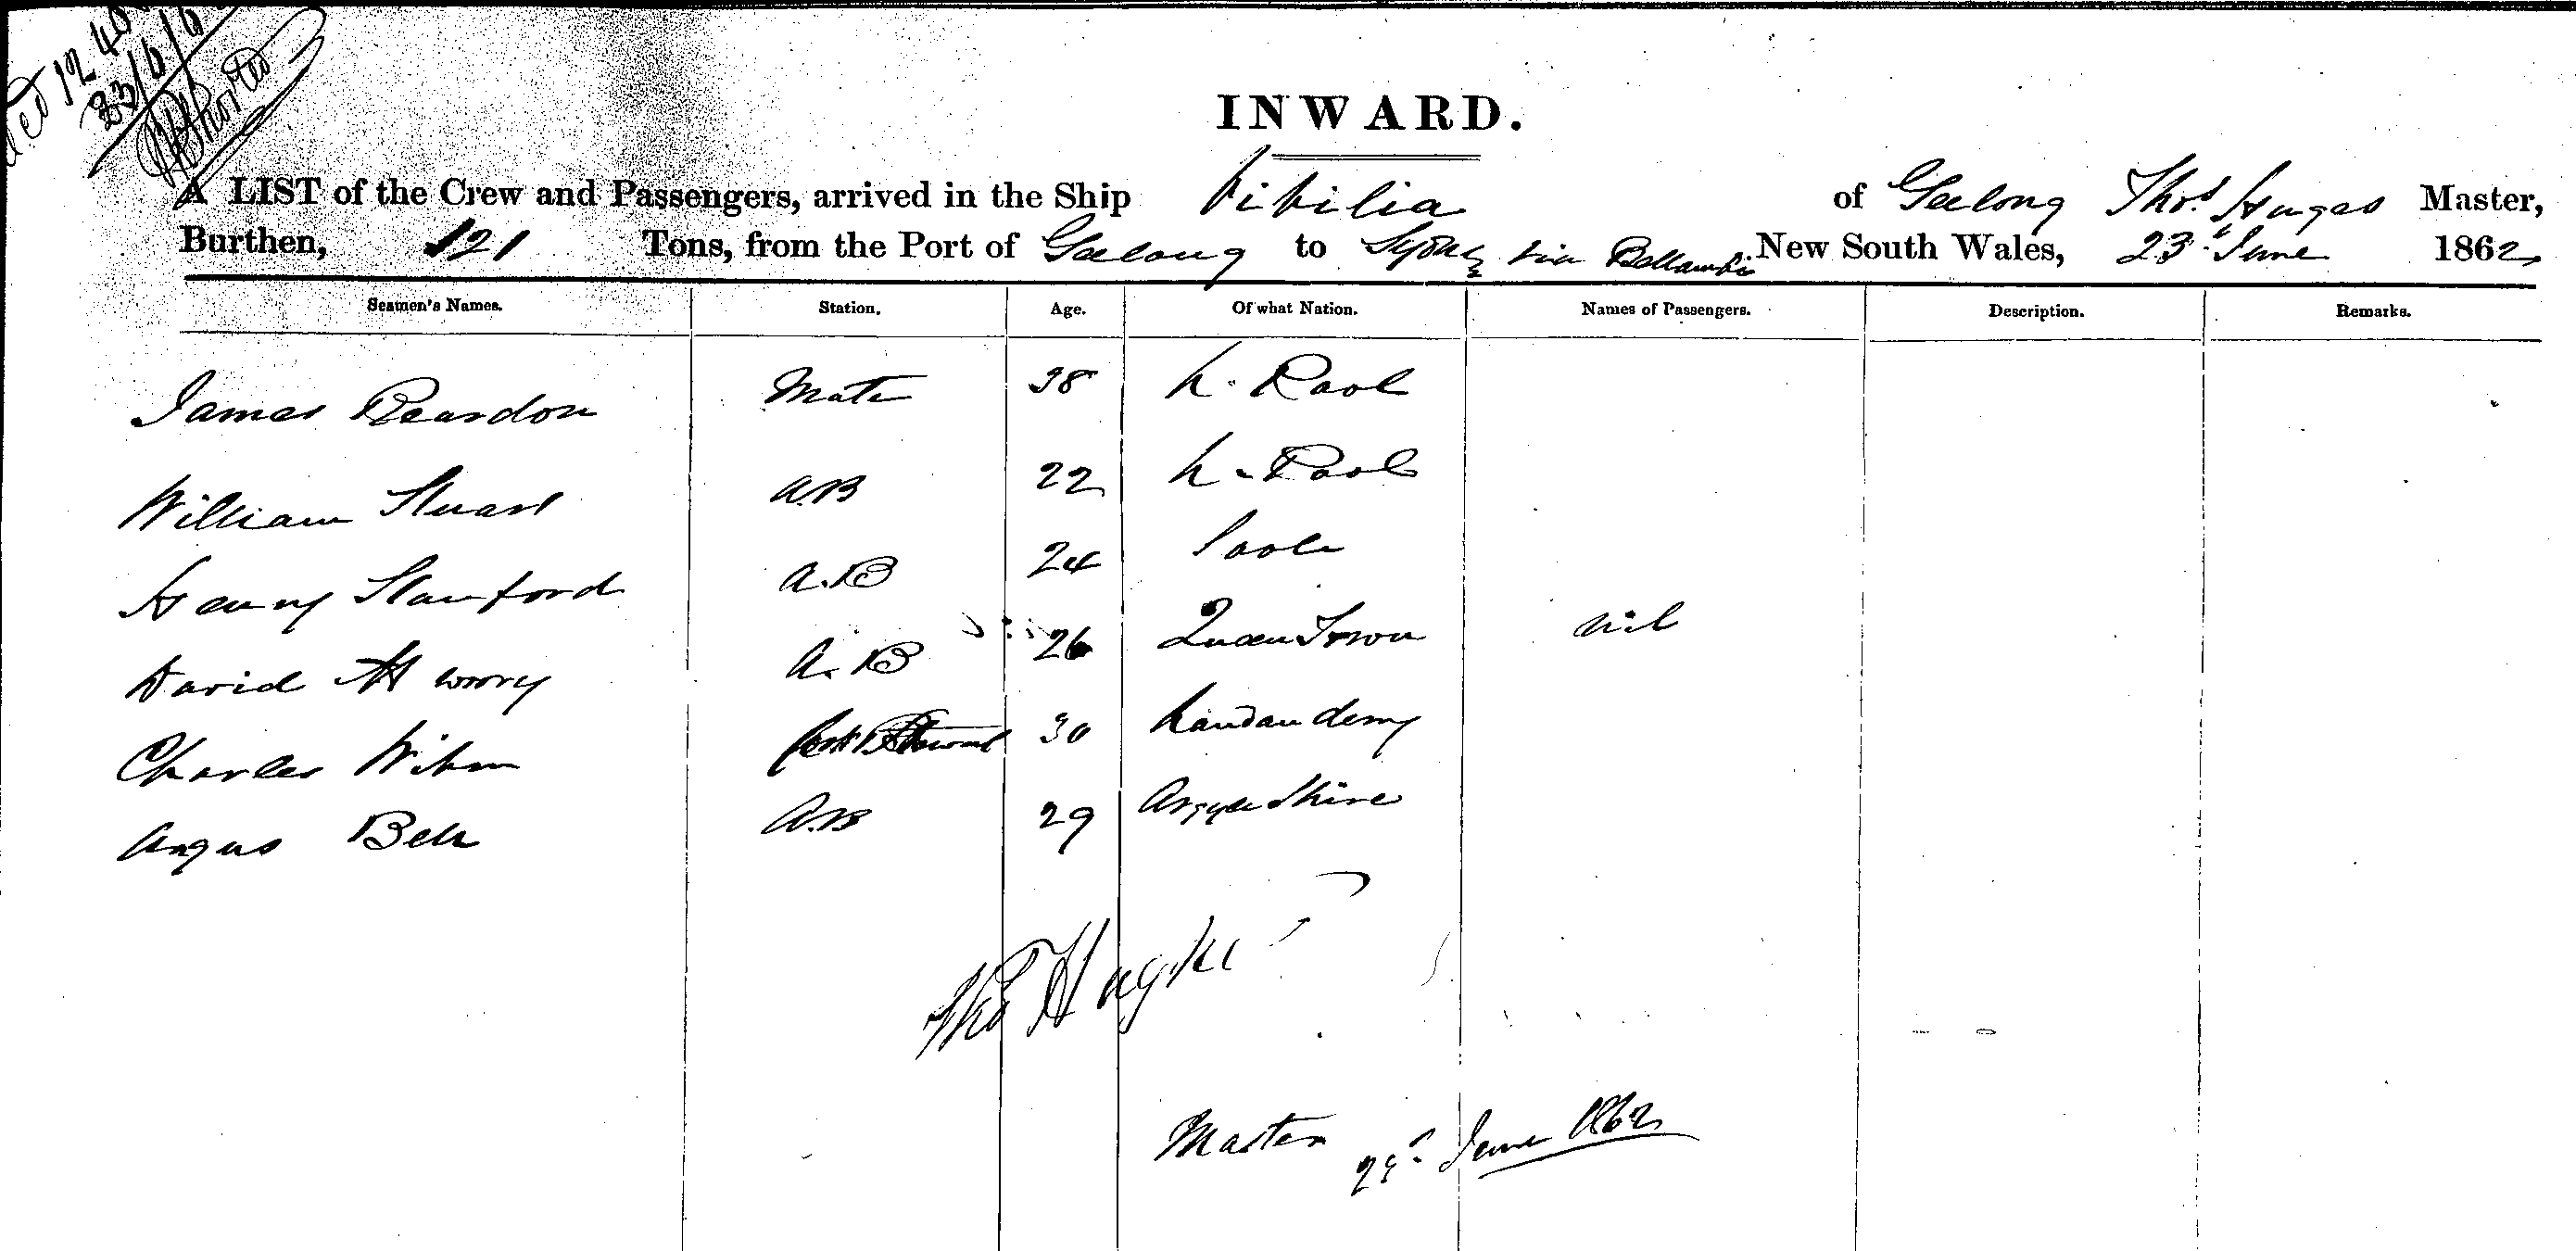 12 40
23/6/6
INWARD.
A LIST of the Crew and Passengers, arrived in the Ship Vibilia of Geelong Thos. Huges Master,
Burthen, 121 Tons, from the Port of Geelong to Sydney via Bellambi New South Wales, 23d June 1862
Seamen's Names. Station. Age. Of what Nation. Names of Passengers. Description. Remarks.
James Reardon Mate 38 L. Pool
William Stuart A.B 22 L. Pool
Henry Stanford A.B 24 Poole
David A.B 26 Queen Town nil
Charles Wilson Cook Steward 30 Londonderry
Angus Bell A.B 29 Argyleshire
Thos Hughes
Master June 1862